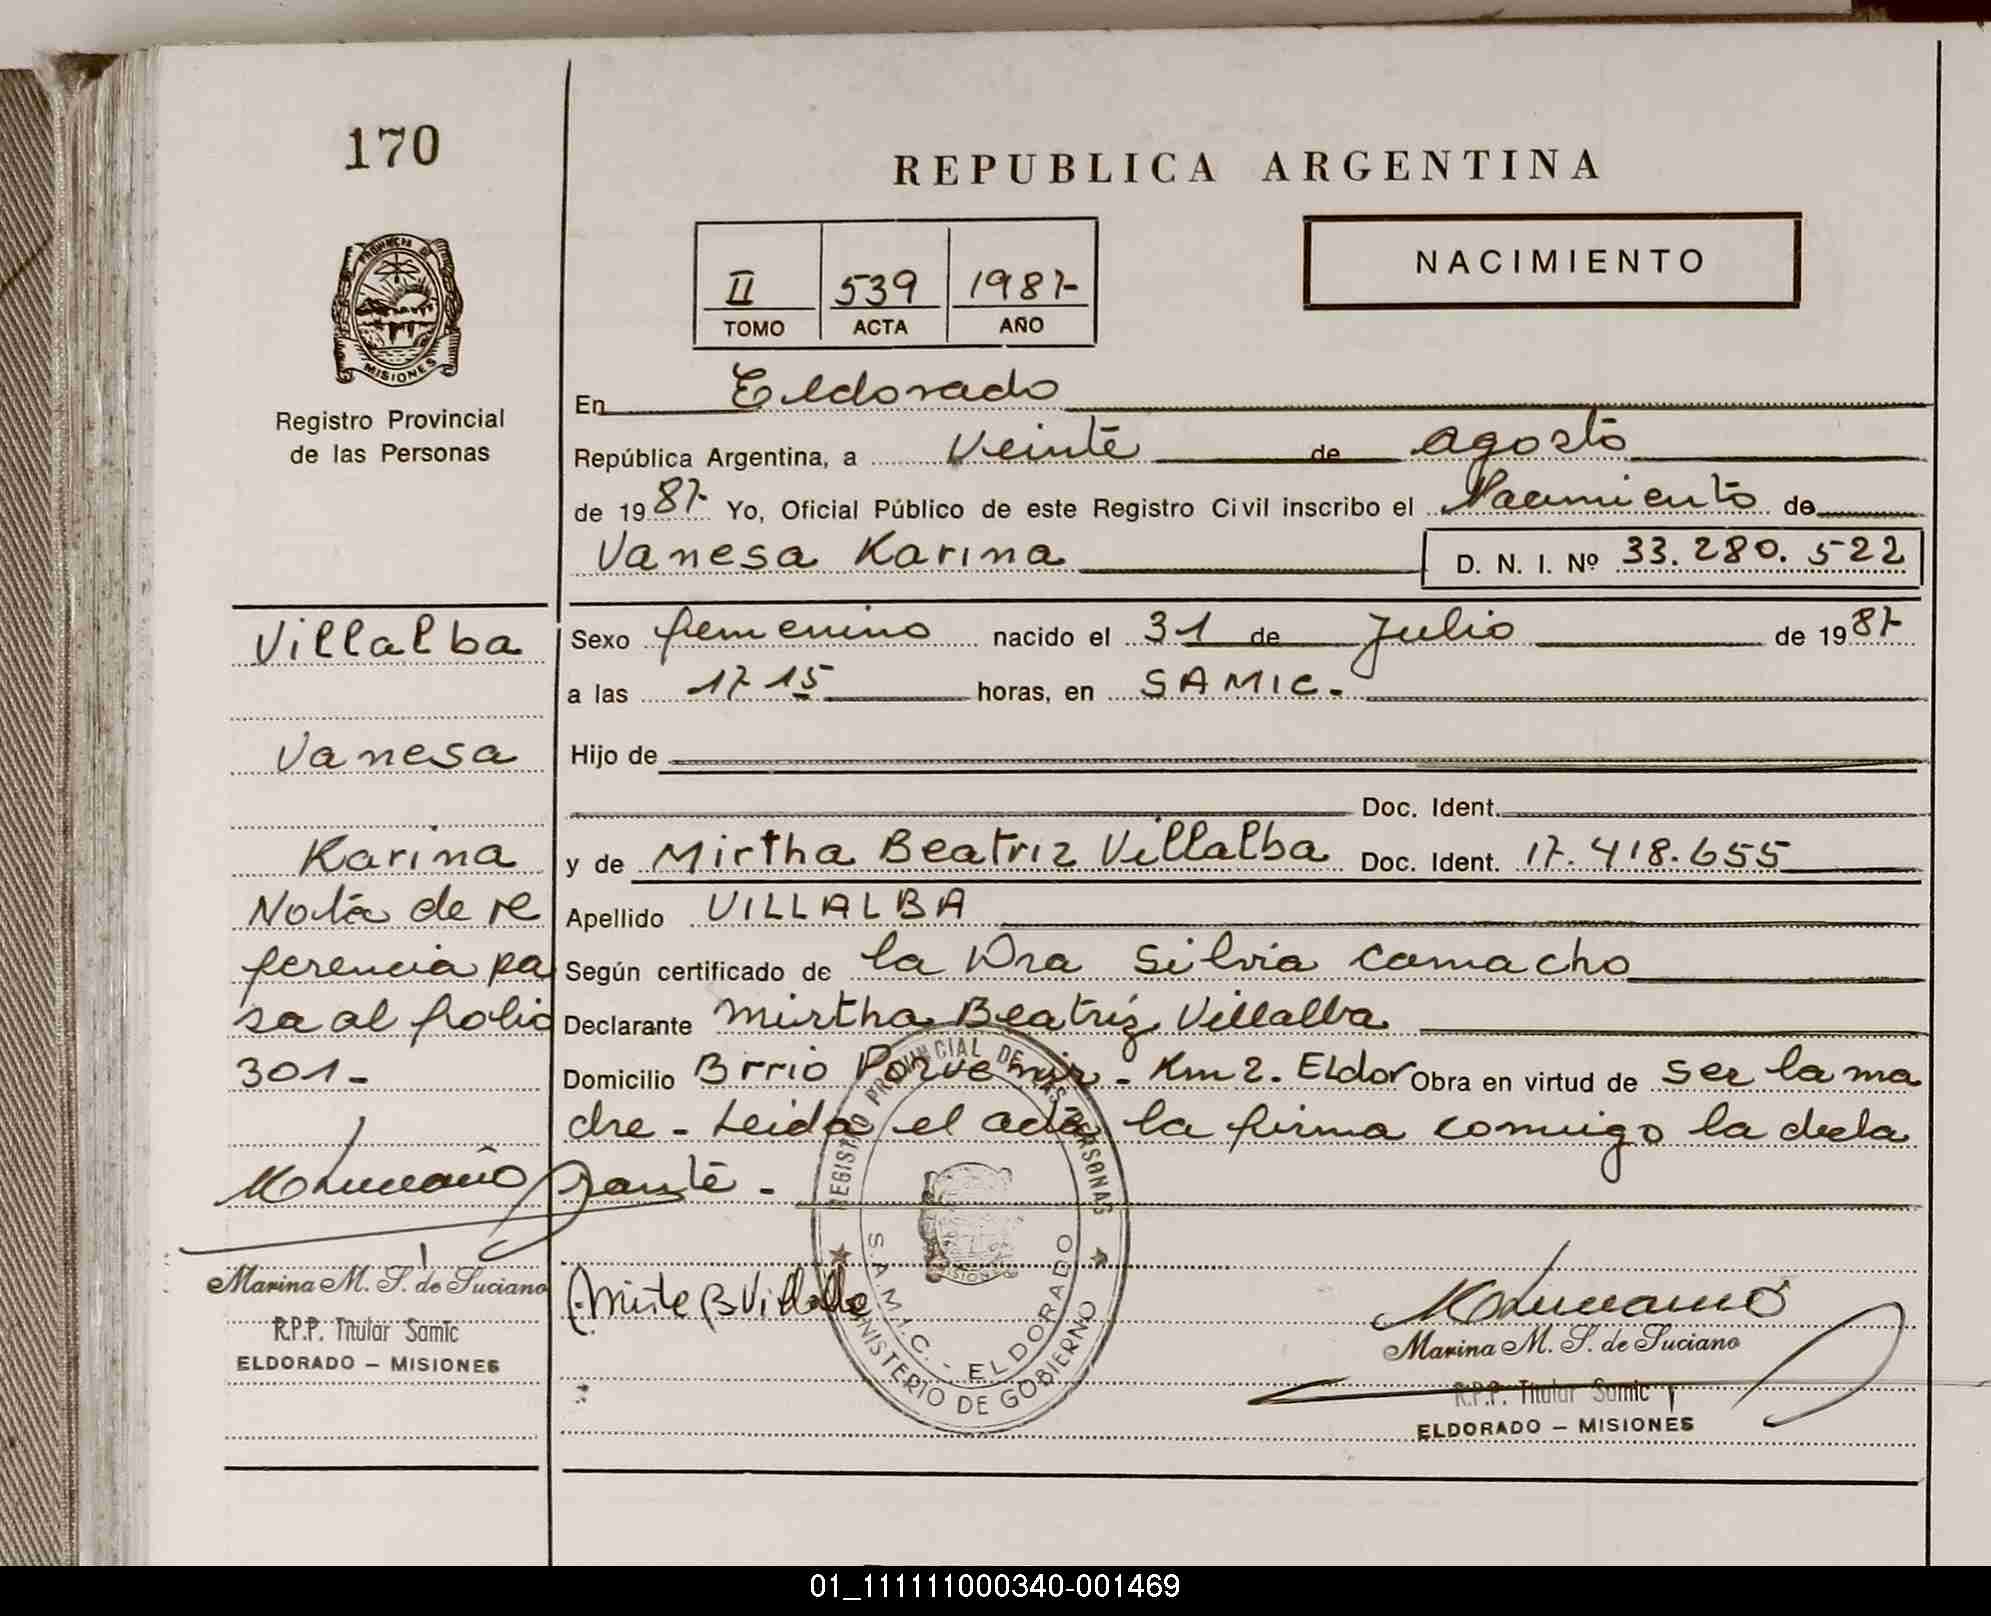 170
REPUBLICA ARGENTINA
PROVINCIA DE
MISIONES
Registro Provincial
de las Personas
NACIMIENTO
II 539 1987-
TOMO ACTA AÑO
En Eldorado
República Argentina, a veinte de agosto
de 1987- Yo, Oficial Público de este Registro Civil inscribo el Nacimiento de
Vanesa Karina D. N. I. Nº 33.280.522
Sexo femenino nacido el 31 de Julio de 1987-
a las 17 15 horas, en SAMIC.
Hijo de
Doc. Ident.
y de Mirtha Beatriz Villalba Doc. Ident. 17.418.655
Apellido VILLALBA
Según certificado de la Dra Silvia Camacho
Declarante Mirtha Beatriz Villalba
Domicilio Brrio Porvenir - Km 2. Eldor Obra en virtud de ser la ma
dre - Leida el acta la firma conmigo la decla
rante -
Villalba
Vanesa
Karina
Nota de re
ferencia pa
sa al folio
301-
Marina M. S. de Luciano
R.P.P. Titular Samic
ELDORADO – MISIONES
REGISTRO PROVINCIAL DE LAS PERSONAS
S.A.M.I.C. - ELDORADO
MINISTERIO DE GOBIERNO
MISIONES
Marina M. S. de Luciano
R.P.P. Titular Samic
ELDORADO – MISIONES
01_111111000340-001469